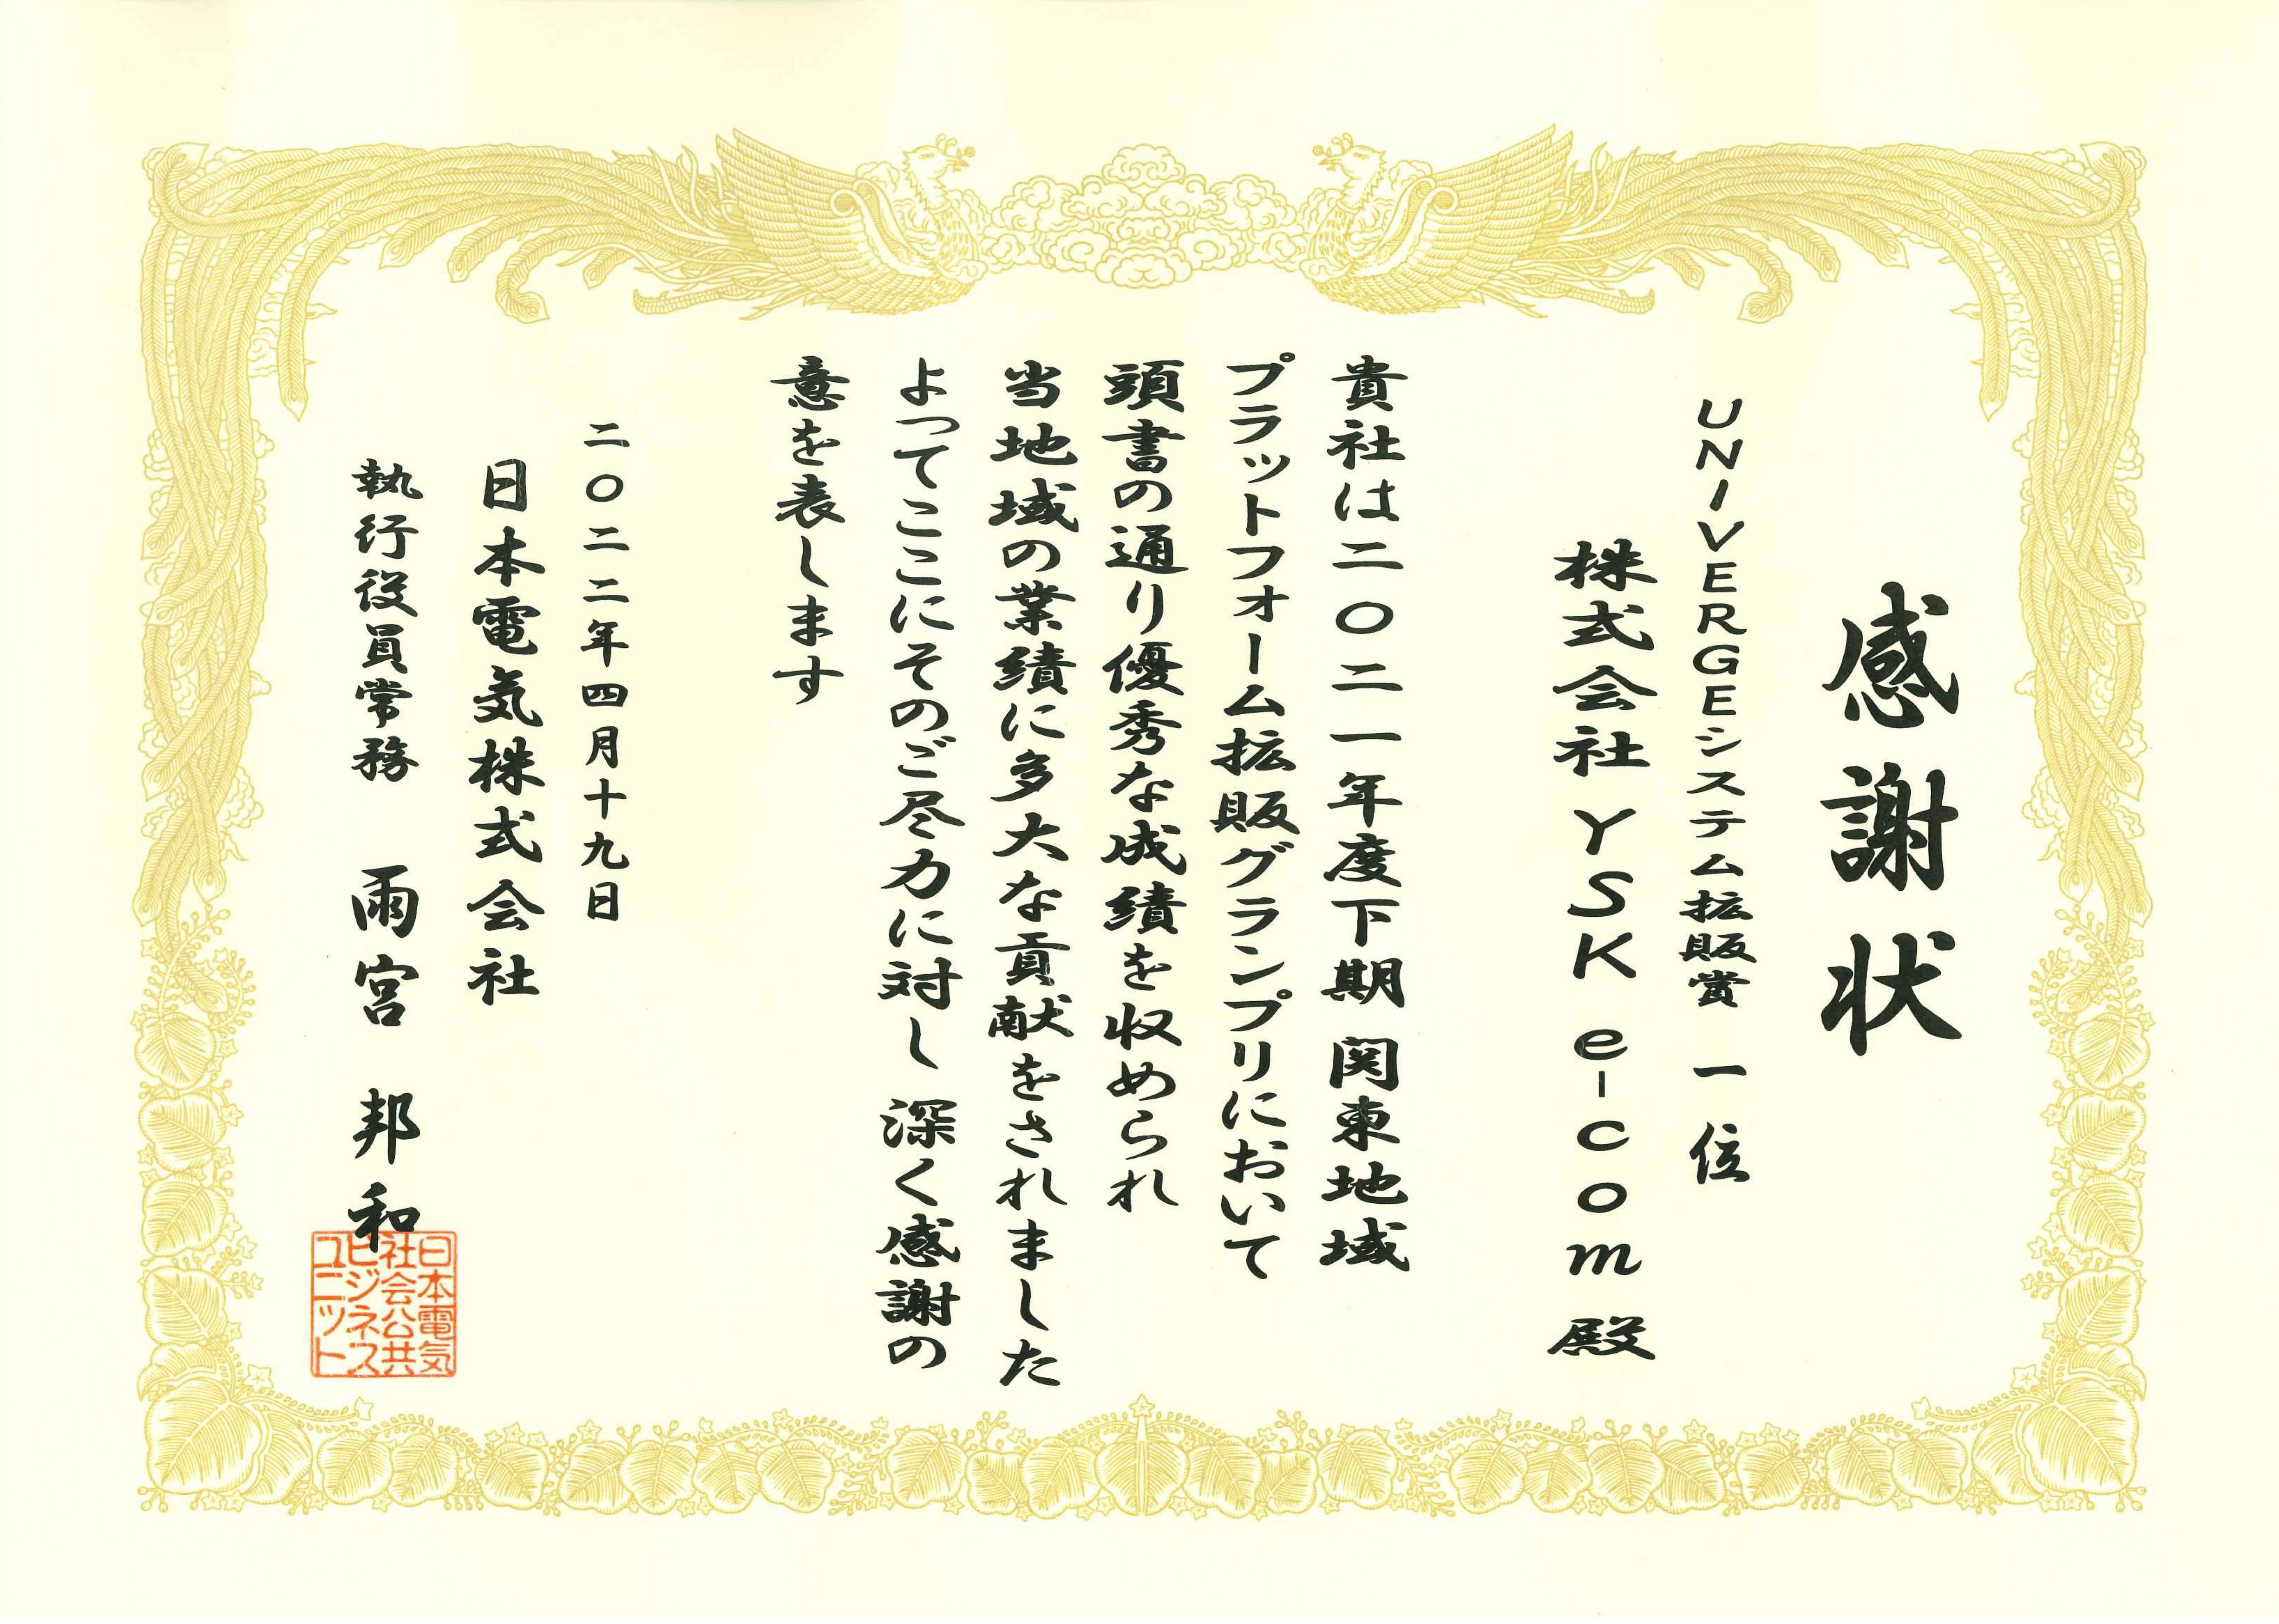 感謝状
UNIVERGEシステム拡販賞 一位
株式会社YSK e-com 殿
貴社は二〇二一年度下期 関東地域
プラットフォーム拡販グランプリにおいて
頭書の通り優秀な成績を収められ
当地域の業績に多大な貢献をされました
よってここにそのご尽力に対し 深く感謝の
意を表します
二〇二二年四月十九日
日本電気株式会社
執行役員常務 雨宮 邦和
日本電気
社会公共
ビジネス
ユニット